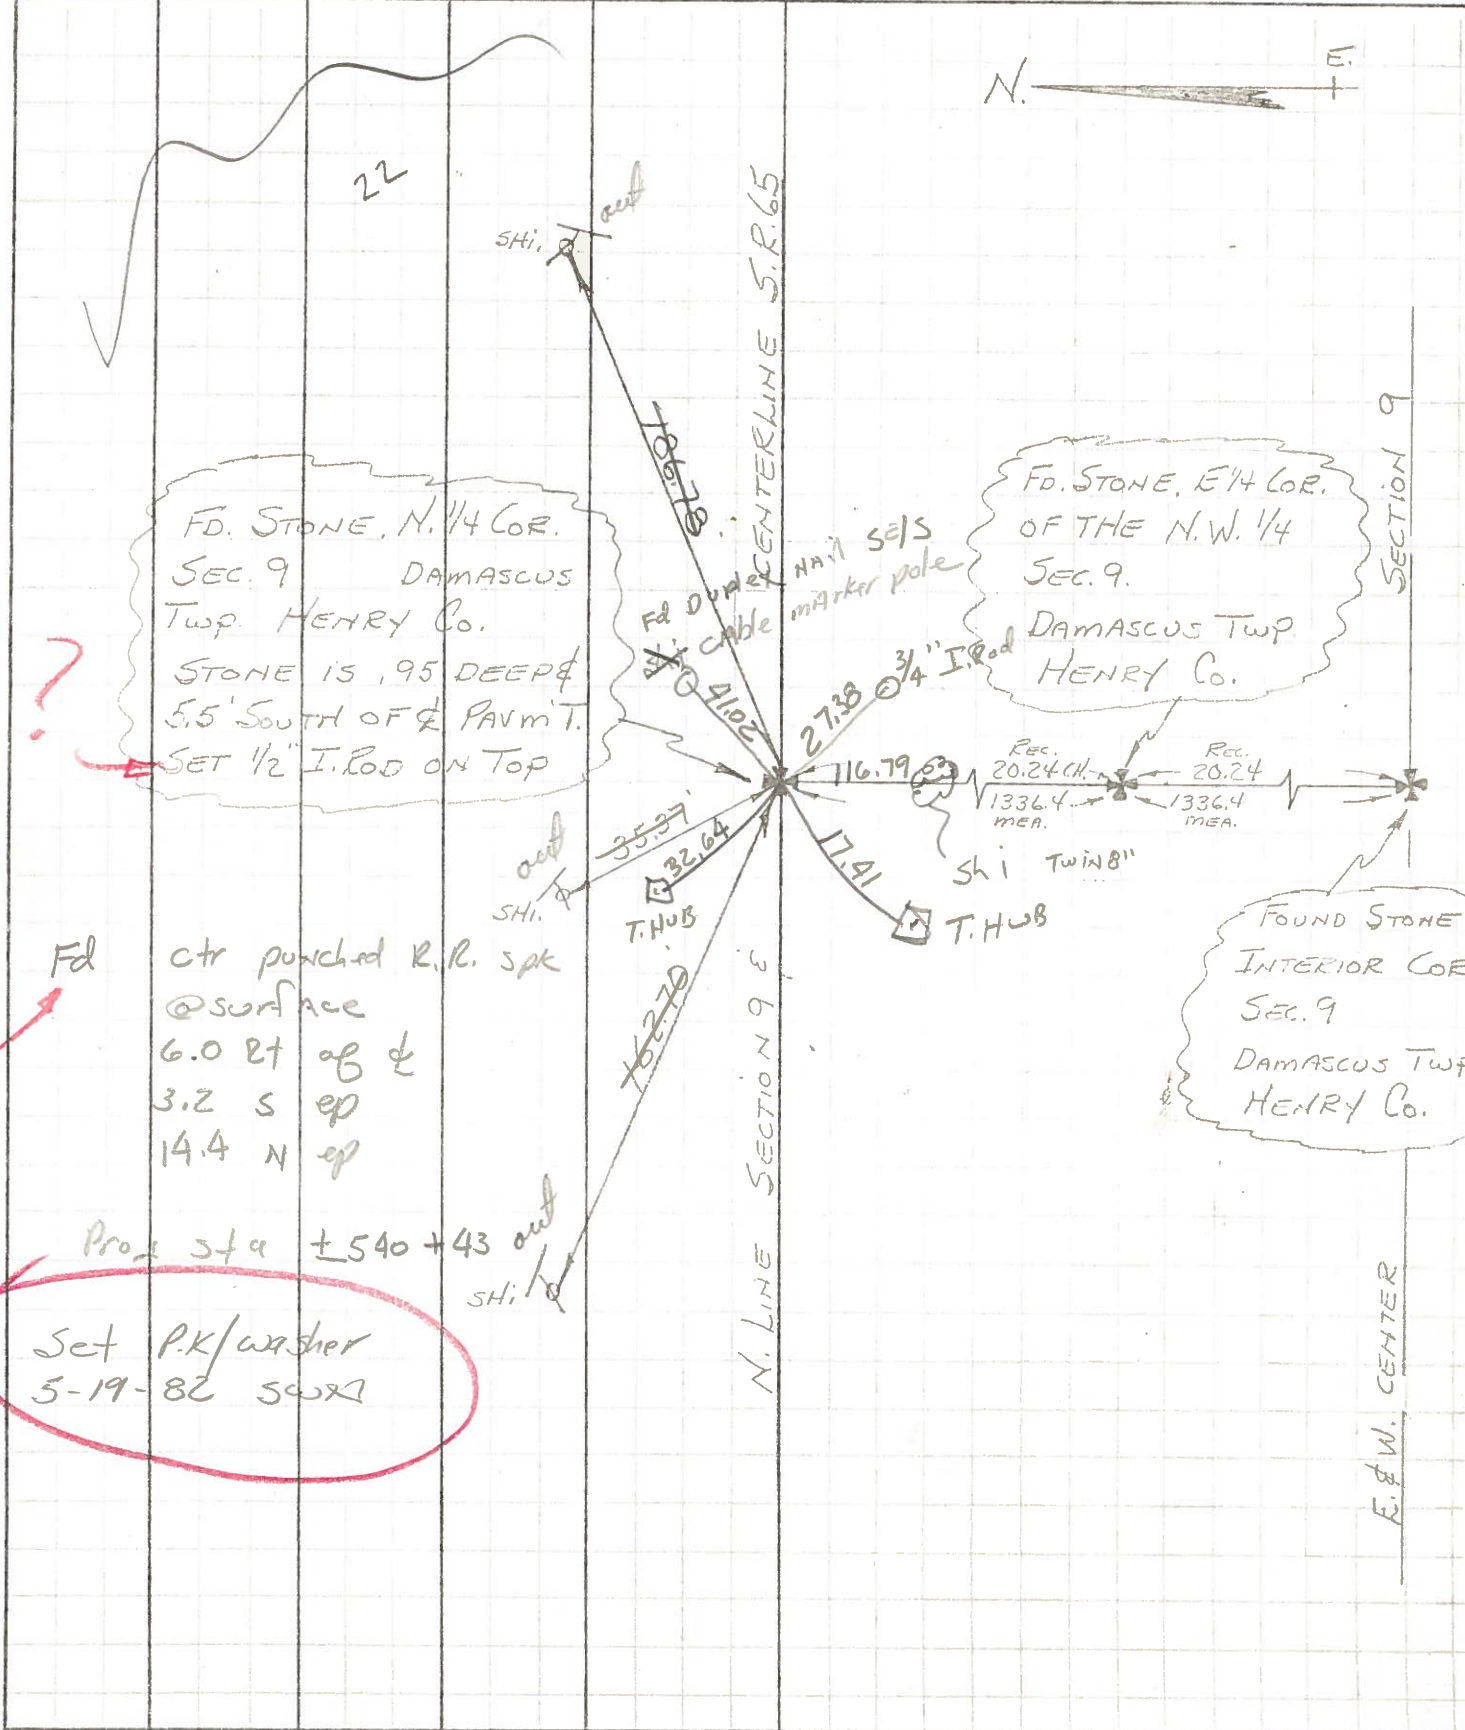 N.
E.
22
SHi.
out
CENTERLINE S.R.65
186.78
FD. STONE, N. 1/4 COR.
SEC. 9 DAMASCUS
TWP. HENRY CO.
STONE IS .95 DEEP &
5.5' SOUTH OF ℄ PAVM'T.
SET 1/2" I.ROD ON TOP
?
Fd Duplex NAil SE/S
CAble mArker pole
41.02
27.38
3/4" I.Rod
FD. STONE, E 1/4 COR.
OF THE N.W. 1/4
SEC. 9.
DAMASCUS TWP
HENRY CO.
SECTION 9
116.79
REC.
20.24 CH.
1336.4
MEA.
REC.
20.24
1336.4
MEA.
Shi TWIN 8"
out
35.37'
SHi.
32.64
T.HUB
17.41
T.HUB
162.70
FOUND STONE
INTERIOR COR
SEC. 9
DAMASCUS TWP
HENRY CO.
Fd ctr punched R.R. spk
@surfAce
6.0 Rt of ℄
3.2 S ep
14.4 N ep
sta ±540+43
out
SHi.
Set P.K/washer
5-19-82
N. LINE SECTION 9 &
E. & W. CENTER